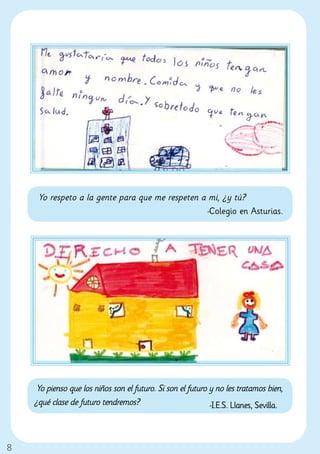 Me gustataría que todos los niños tengan
amor y nombre. Comida y que no les
falte ningun día. Y sobretodo que tengan
salud.
Yo respeto a la gente para que me respeten a mi, ¿y tú?
-Colegio en Asturias.
DERECHO A TENER UNA
CASA
Yo pienso que los niños son el futuro. Si son el futuro y no les tratamos bien,
¿qué clase de futuro tendremos?
-I.E.S. Llanes, Sevilla.
8